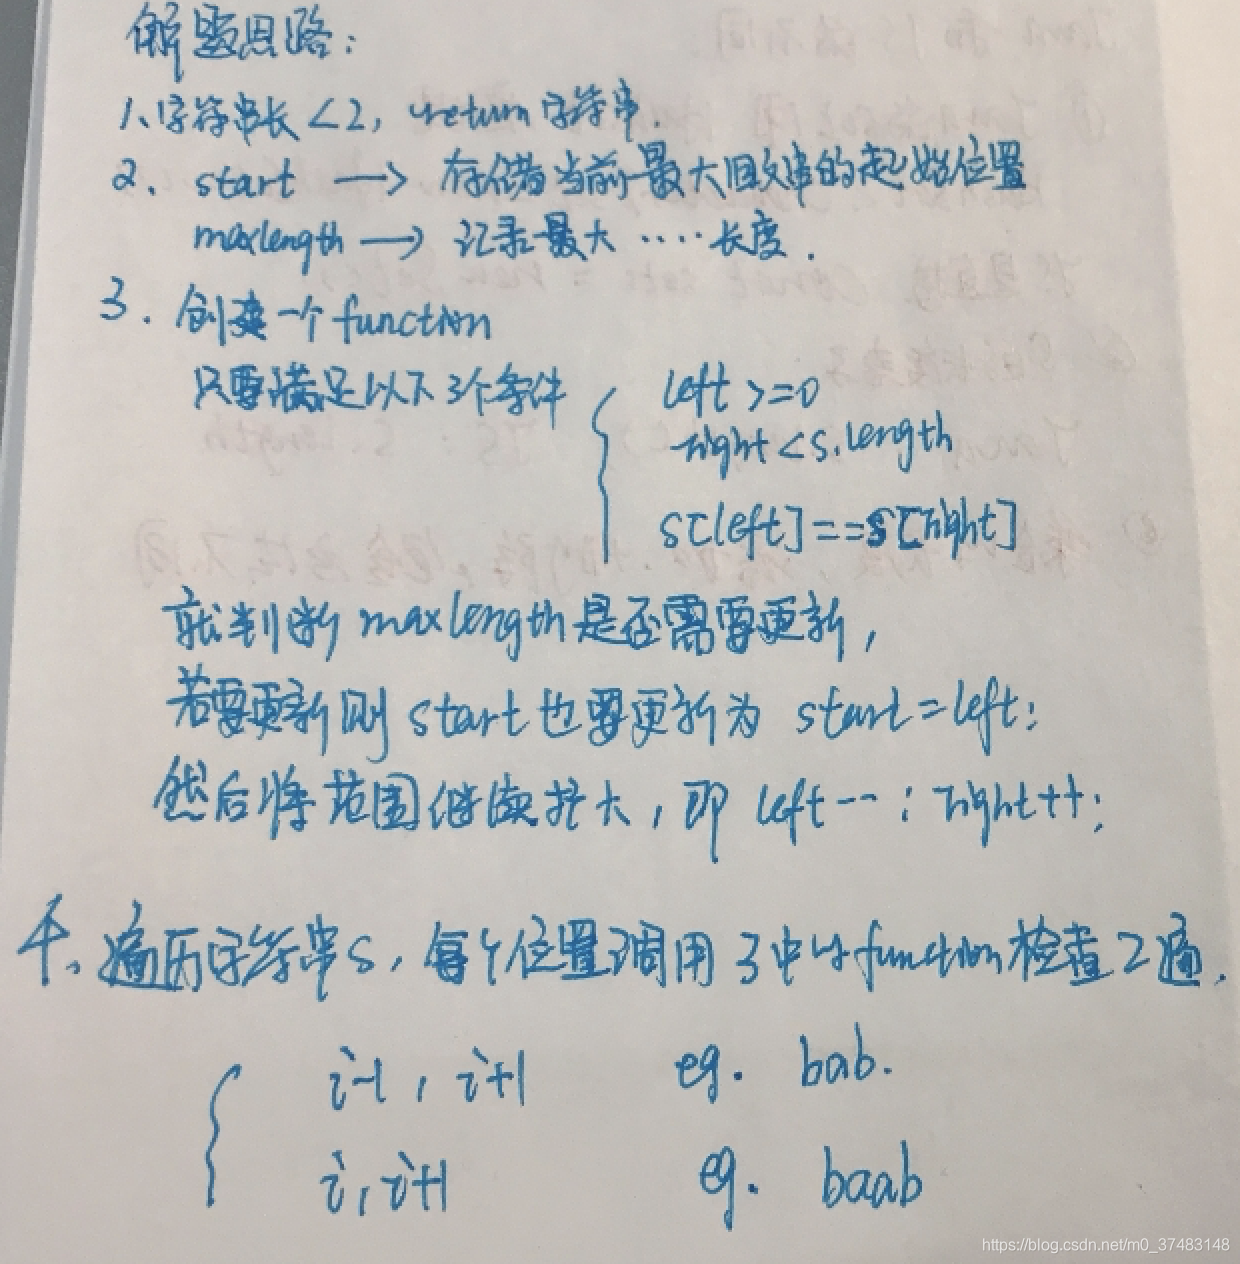 解题思路：
1、字符串长<2，return 字符串.
2、start → 存储当前最大回文串的起始位置
maxlength → 记录最大 ····长度.
3. 创建一个 function
只要满足以下3个条件 { left >=0
right <s.length
s[left]==s[right]
就判断 maxlength 是否需要更新，
若要更新则 start 也要更新为 start=left;
然后将范围继续扩大，即 left--; right++;
4、遍历字符串s，每个位置调用 3中的function 检查2遍.
{ i-1, i+1 eg. bab.
i, i+1 eg. baab
https://blog.csdn.net/m0_37483148